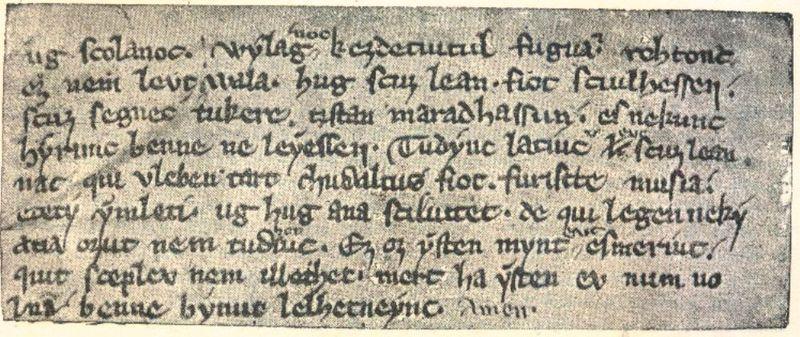 ug scolanoc. wylagnoc kezdetuitul fugua. rohtonc
ez nem levt wala. hug scuz lean. fiot sciulhessen.
scuz segnec tukere. tistan maradhassun. es nekunc
hyrunc benne ne leyessen. Tudyuc latiuc scuz lean
nac qui vleben tart chudaltus fiot. furistte musia.
etety ymleti. ug hug ana sciluttet. de qui legen neky
atia ozut nem Ez oz ysten mynt esmeriuc.
quit sceplev nem illethet. mert ha ysten ev num uo
lna benne bynut lelhetneync. Amen.